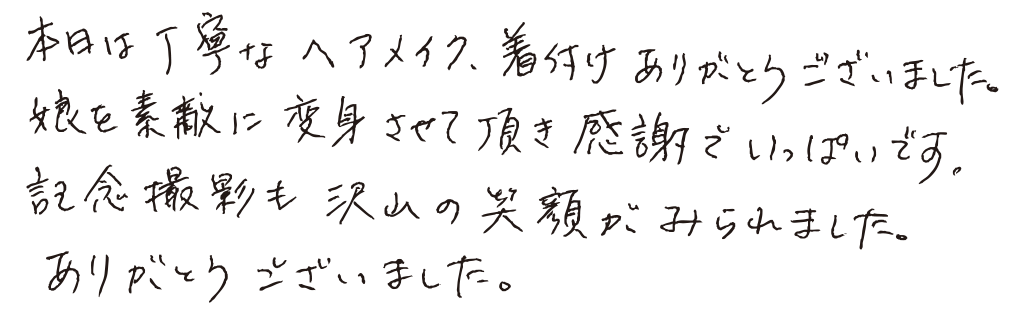 本日は丁寧なヘアメイク、着付けありがとうございました。
娘を素敵に変身させて頂き感謝でいっぱいです。
記念撮影も沢山の笑顔がみられました。
ありがとうございました。